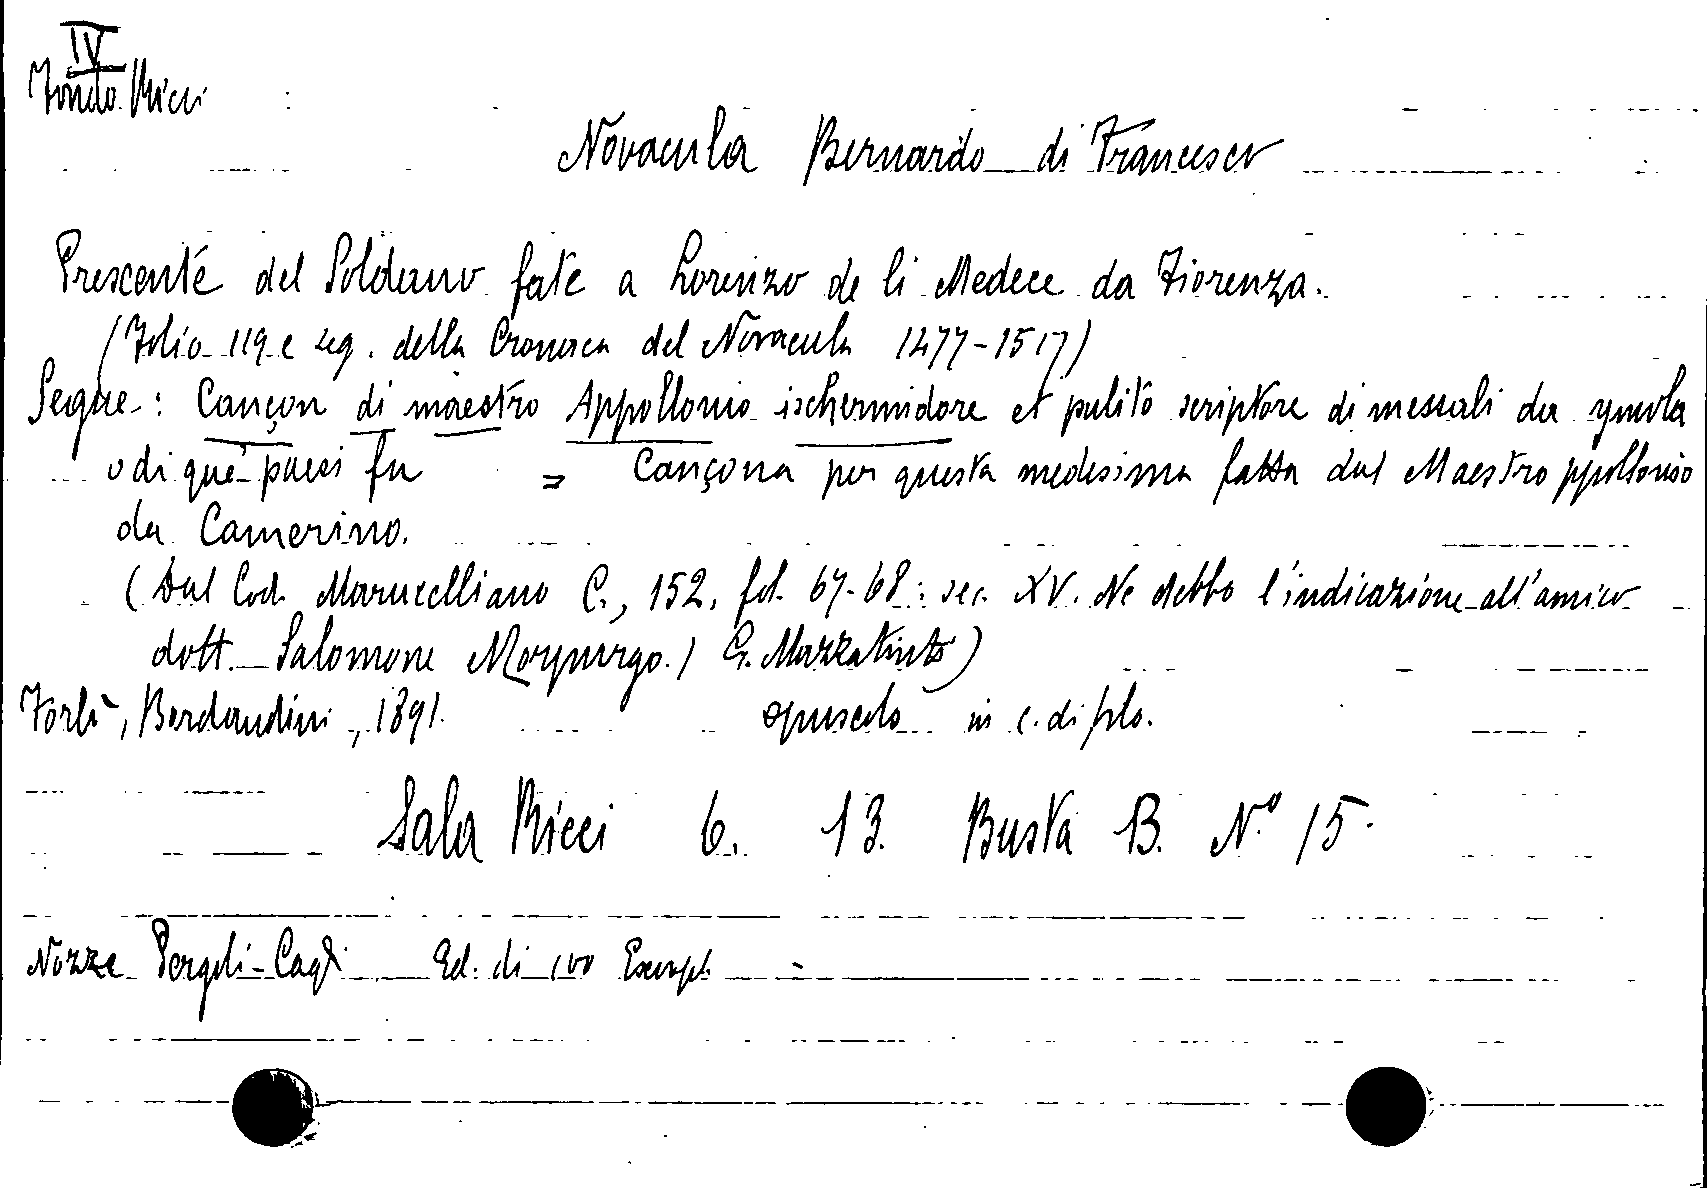 IV
Fondo Ricci
Novacula Bernardo di Francesco
Prescente del Soldano fate a Lorenzo de li Medece da Fiorenza.
(Folio 119 e seg. della Cronaca del Novacula 1477-1517)
Segue: Cançon di maestro Appollonio ischermidore et pulito scriptore di messali da ymola
o di que' paesi fu = Cançona per questa medesima fatta dal Maestro ppollonio
da Camerino.
(Dal Cod. Marucelliano C., 152, fol. 67-68: sec. XV. Ne debbo l'indicazione all'amico
dott. Salomone Morpurgo.) G. Mazzatinti)
Forlì, Bordandini, 1891. opuscolo in c. di filo.
Sala Ricci 6. 13. Busta B. N.° 15.
Nozze Pergoli-Cagli Ed. di 100 Esempl.